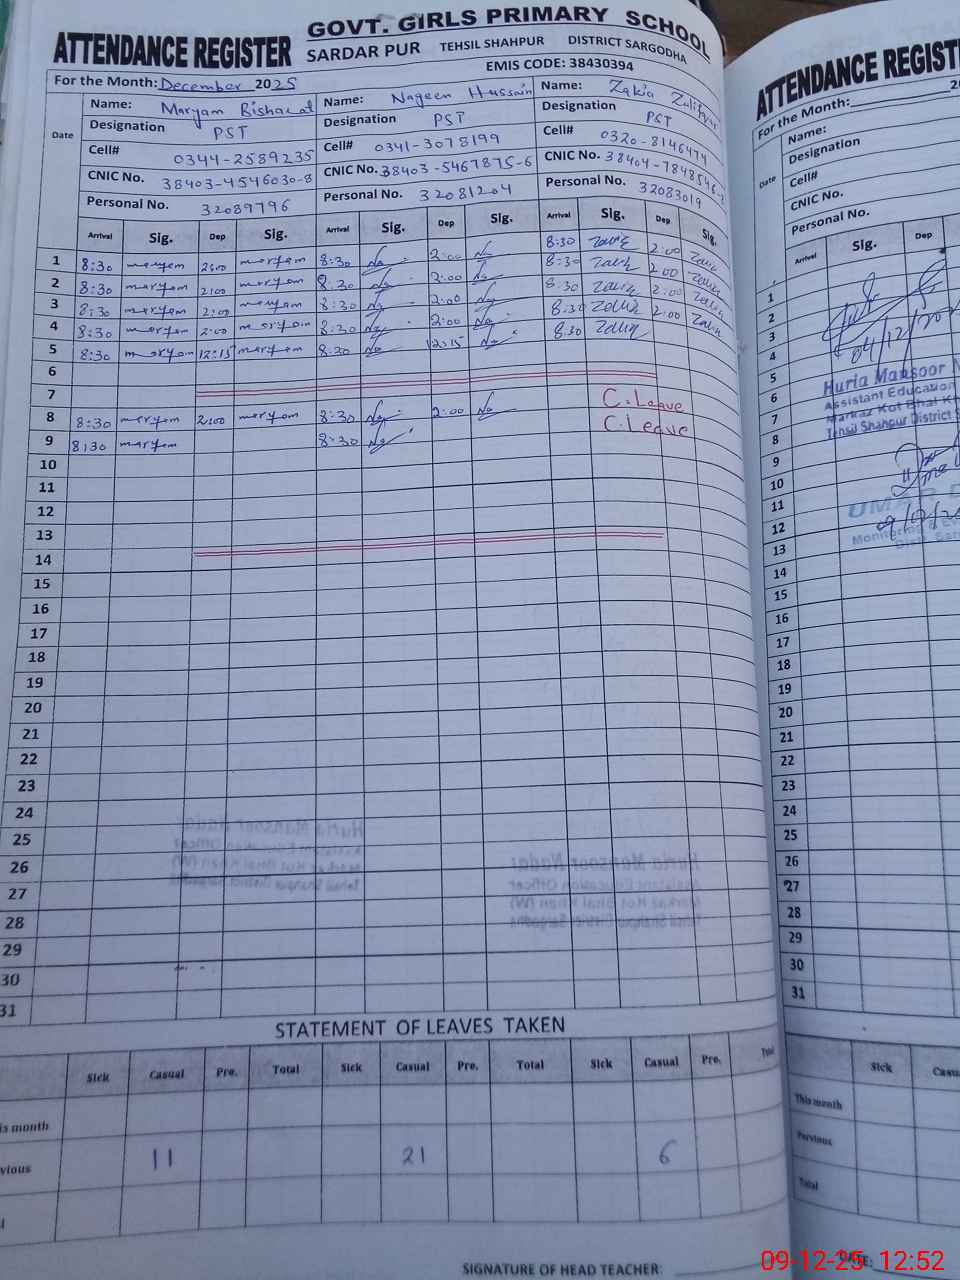 ATTENDANCE REGISTER GOVT. GIRLS PRIMARY SCHOOL
SARDAR PUR TEHSIL SHAHPUR DISTRICT SARGODHA
EMIS CODE: 38430394
For the Month: December 2025
Date
Name: Maryam Bishacat Name: Nageen Hussain Name: Zakia
Designation PST Designation PST Designation PST
Cell# 0344-2589235 Cell# 0341-3078199 Cell# 0320-8146474
CNIC No. 38403-4546030-8 CNIC No. 38403-5467875-6 CNIC No. 38404-7848546-2
Personal No. 32089796 Personal No. 32081204 Personal No. 32083019
Arrival Sig. Dep Sig. Arrival Sig. Dep Sig. Arrival Sig. Dep Sig.
1 8:30 maryam 2:00 maryam 8:30 Na 2:00 Na 8:30 2:00
2 8:30 maryam 2:00 maryam 8:30 Na 2:00 Na 8:30 2:00
3 8:30 maryam 2:00 maryam 8:30 Na 2:00 Na 8:30 2:00
4 8:30 maryam 2:00 maryam 8:30 Na 2:00 Na 8:30 2:00
5 8:30 maryam 12:15 maryam 8:30 Na 12:15 Na 8:30
6
7
8 8:30 maryam 2:00 maryam 8:30 Na 2:00 Na C.Leave
9 8:30 maryam 8:30 Na C.Leave
10
11
12
13
14
15
16
17
18
19
20
21
22
23
24
25
26
27
28
29
30
31
STATEMENT OF LEAVES TAKEN
Sick Casual Pre. Total Sick Casual Pre. Total Sick Casual Pre. Total
is month
vious 11 21 6
SIGNATURE OF HEAD TEACHER:
ATTENDANCE REGIST
For the Month: 20
Date
Name:
Designation
Cell#
CNIC No.
Personal No.
Arrival Sig. Dep
1
2
3
04/12/20
4
5
Huria Mansoor N
6
Assistant Education
7
Markaz Kot Bhai Kh
8
Tehsil Shahpur District S
9
10
11
UMAR
12
09/12/20
13
Monitering & Ev
14
15
16
17
18
19
20
21
22
23
24
25
26
27
28
29
30
31
Sick Casu
This month
Pervious
Total
DATE:
09-12-25 12:52